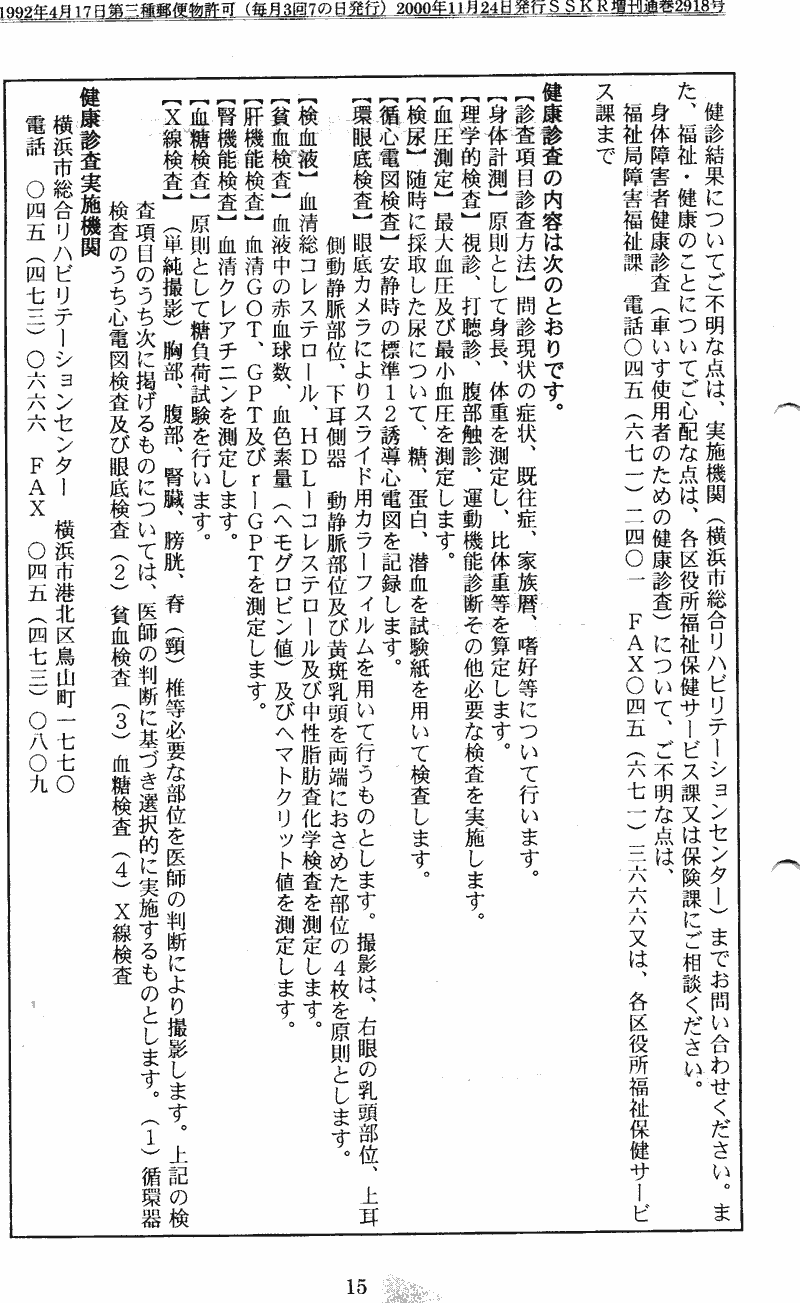 1992年4月17日第三種郵便物許可（毎月3回7の日発行）2000年11月24日発行ＳＳＫＲ増刊通巻2918号
健診結果についてご不明な点は、実施機関（横浜市総合リハビリテーションセンター）までお問い合わせください。ま
た、福祉・健康のことについてご心配な点は、各区役所福祉保健サービス課又は保険課にご相談ください。
身体障害者健康診査（車いす使用者のための健康診査）について、ご不明な点は、
福祉局障害福祉課　電話〇四五（六七一）二四〇一　ＦＡＸ〇四五（六七一）三六六六又は、各区役所福祉保健サービ
ス課まで
健康診査の内容は次のとおりです。
【診査項目診査方法】問診現状の症状、既往症、家族暦、嗜好等について行います。
【身体計測】原則として身長、体重を測定し、比体重等を算定します。
【理学的検査】視診、打聴診、腹部触診、運動機能診断その他必要な検査を実施します。
【血圧測定】最大血圧及び最小血圧を測定します。
【検尿】随時に採取した尿について、糖、蛋白、潜血を試験紙を用いて検査します。
【循心電図検査】安静時の標準１２誘導心電図を記録します。
【環眼底検査】眼底カメラによりスライド用カラーフィルムを用いて行うものとします。撮影は、右眼の乳頭部位、上耳
側動静脈部位、下耳側器　動静脈部位及び黄斑乳頭を両端におさめた部位の４枚を原則とします。
【検血液】血清総コレステロール、ＨＤＬーコレステロール及び中性脂肪査化学検査を測定します。
【貧血検査】血液中の赤血球数、血色素量（ヘモグロビン値）及びヘマトクリット値を測定します。
【肝機能検査】血清ＧＯＴ、ＧＰＴ及びｒーＧＰＴを測定します。
【腎機能検査】血清クレアチニンを測定します。
【血糖検査】原則として糖負荷試験を行います。
【Ｘ線検査】（単純撮影）胸部、腹部、腎臓、膀胱、脊（頸）椎等必要な部位を医師の判断により撮影します。上記の検
査項目のうち次に掲げるものについては、医師の判断に基づき選択的に実施するものとします。（１）循環器
検査のうち心電図検査及び眼底検査（２）貧血検査（３）血糖検査（４）Ｘ線検査
健康診査実施機関
横浜市総合リハビリテーションセンター　横浜市港北区鳥山町一七七〇
電話　〇四五（四七三）〇六六六　ＦＡＸ　〇四五（四七三）〇八〇九
15